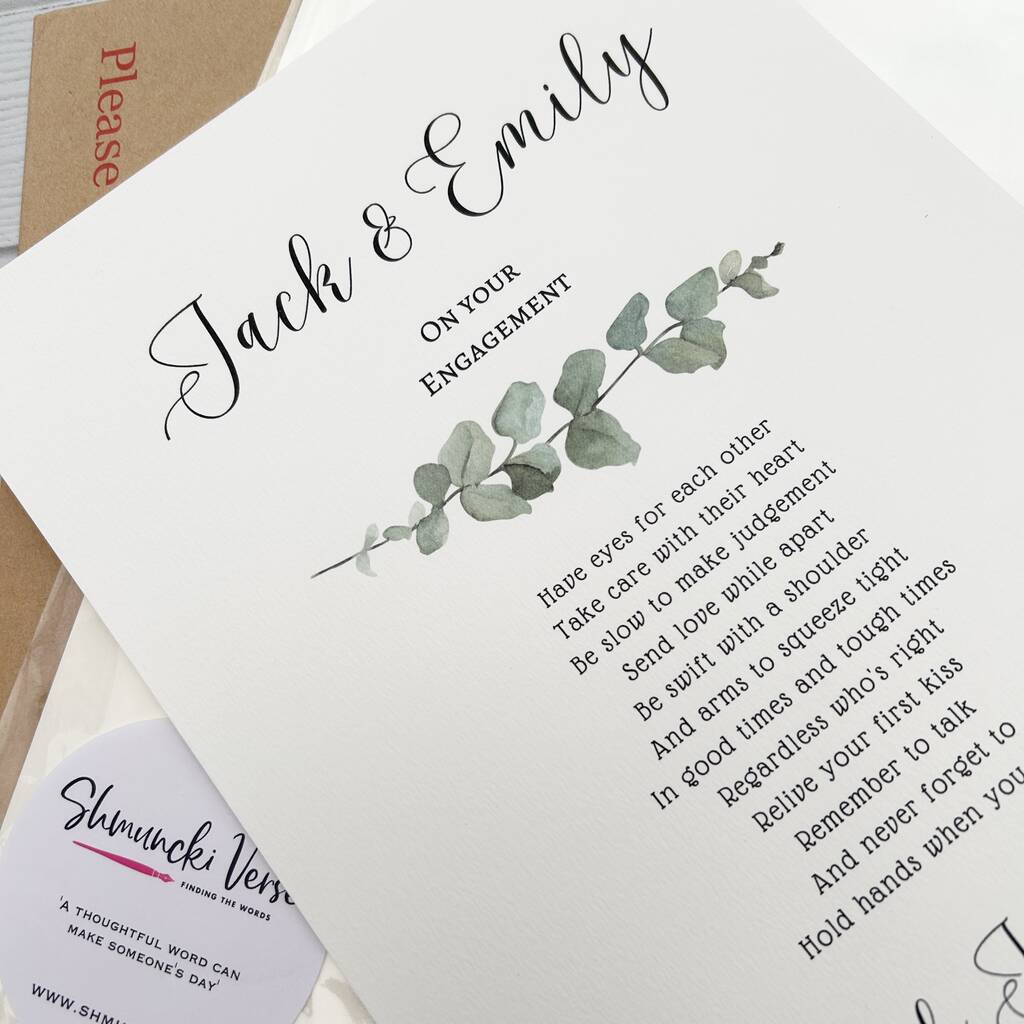 Please
Jack & Emily
ON YOUR
ENGAGEMENT
Have eyes for each other
Take care with their heart
Be slow to make judgement
Send love while apart
Be swift with a shoulder
And arms to squeeze tight
In good times and tough times
Regardless who's right
Relive your first kiss
Remember to talk
And never forget to
Hold hands when you
Shmuncki Verse
FINDING THE WORDS
'A THOUGHTFUL WORD CAN
MAKE SOMEONE'S DAY'
WWW.SHMU